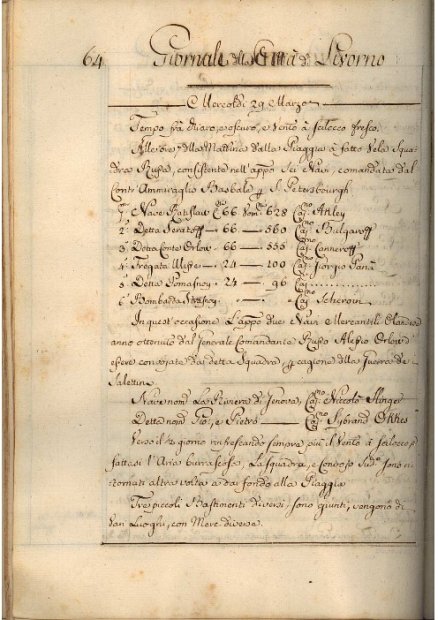 64 Giornale della Città di Livorno
Mercoldì 29 Marzo
Tempo frà chiaro, e oscuro, e Vento à Scilocco fresco.
Alle ore 7 della Mattina dalla Piaggia à fatto Vela la Squa
dra Russa, consistente nell'appo Sei Navi, comandata dal
Contr' Ammiraglio Basbale p S. Petersbourgh
1a Nave Ratislaw Ci 66 Uomi 628 Capno Anley
2a Detta Seratoff — 66 — 560 Capno Bulgaroff
3a Detta Conte Orlow — 66 — 555 Capno
4a Fregata — 24 — 100 Capno Giorgio Panà
5a Detta — 24 — 96 Capno
6a Bombarda — Capno
In quest'occasione L'appo due Navi Mercantili Olandesi
anno ottenuto dal Generale Comandante Russo Alessio Orlow d'
essere convojate da detta Squadra, p cagione della Guerra de
Saletini.
Nave nomta La Riviera di Genova, Capno Niccolò
Detta nomta Gio:, e Pietro — Capno Sybrand
Verso il giorno rinfrescando sempre più il Vento à Scilocco, e
fattasi l'Aria burrascosa, La Squadra, e Convojo Sudo sono ri
tornati altra volta a dar fondo alla Piaggia
Tre piccoli Bastimenti diversi, sono giunti, vengono di
van Luoghi, con Merci diverse.